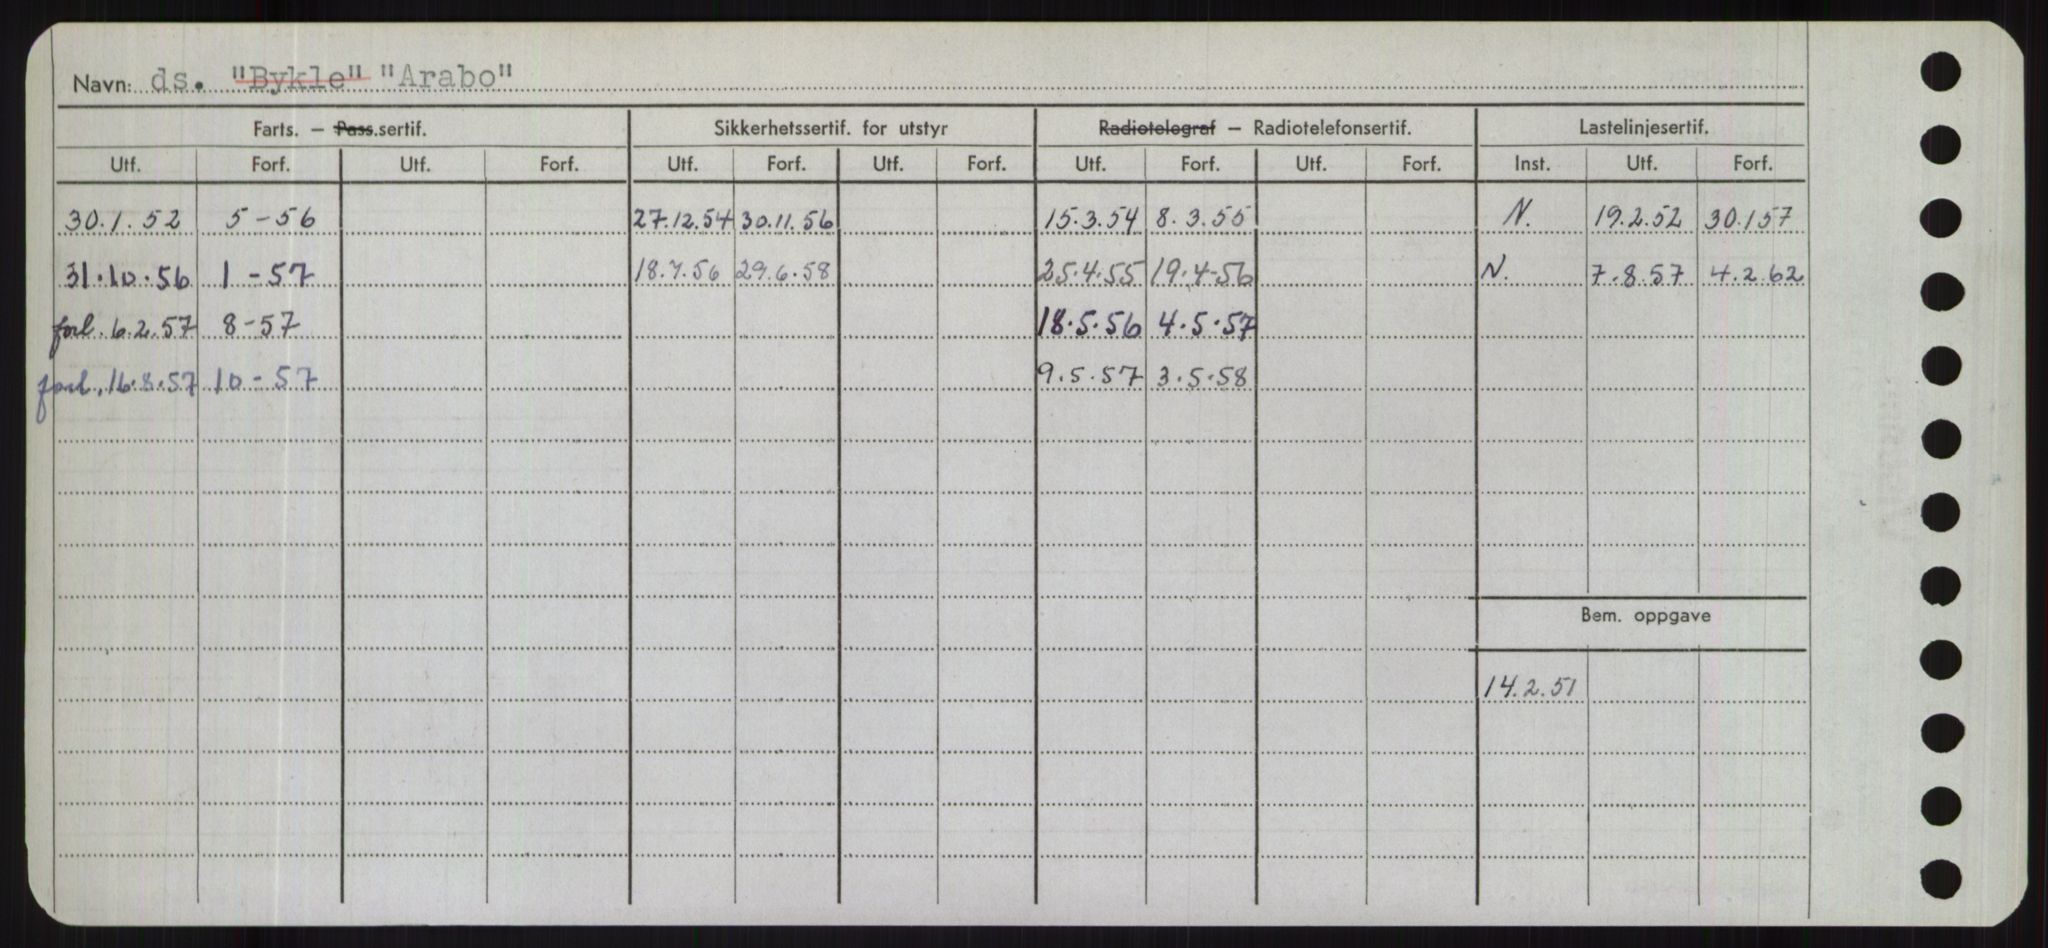 Navn: ds. "Bykle" "Arabo"
Farts. – Pass.sertif. Sikkerhetssertif. for utstyr Radiotelegraf – Radiotelefonsertif. Lastelinjesertif.
Utf. Forf. Utf. Forf. Utf. Forf. Utf. Forf. Utf. Forf. Utf. Forf. Inst. Utf. Forf.
30.1.52 5-56 27.12.54 30.11.56 15.3.54 8.3.55 N. 19.2.52 30.1 57
31.10.56 1-57 18.7.56 29.6.58 25.4.55 19.4-56 N. 7.8.57 4.2.62
forl. 6.2.57 8-57 18.5.56 4.5.57
forl. 16.8.57 10-57 9.5.57 3.5.58
Bem. oppgave
14.2.51